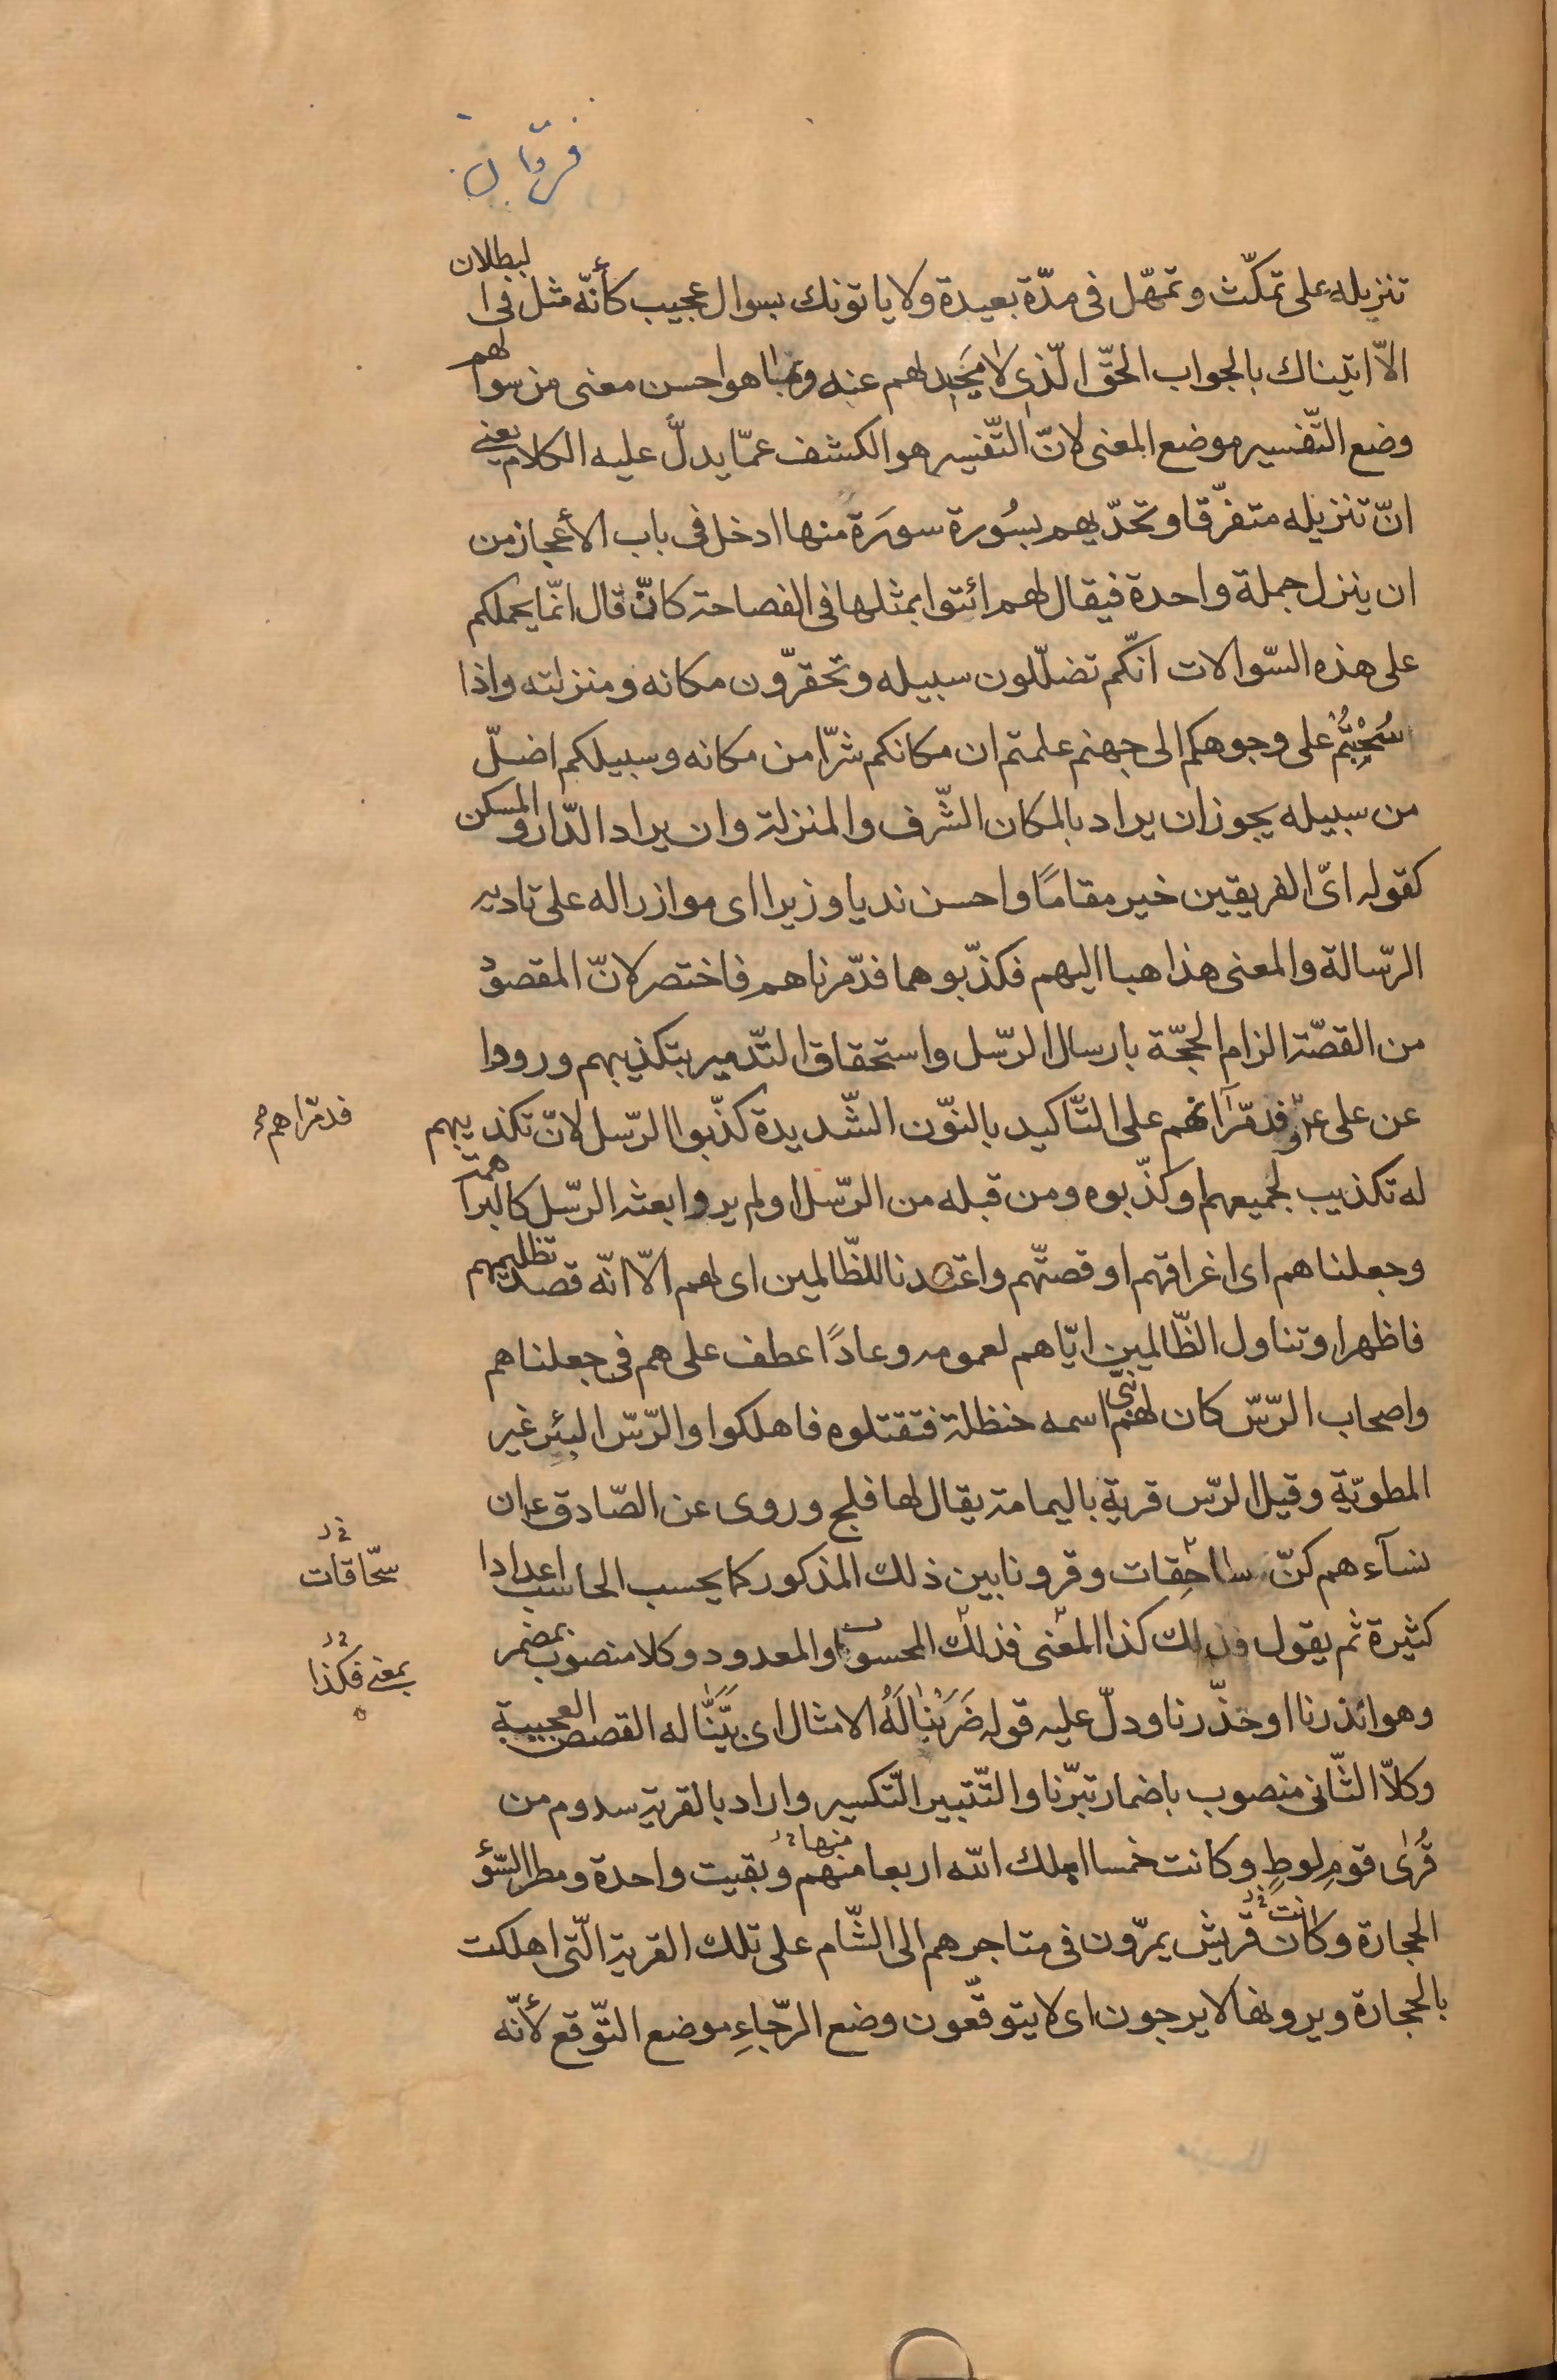 تنزيله على تمكّث وتمهّل فى مدّة بعيدة ولا ياتونك بسوال عجيب كأنّه مثل فى البطلان
الاّ اتيناك بالجواب الحقّ الّذى لا محيد لهم عنه وبما هو احسن معنى من سوالهم
وضع التّفسير موضع المعنى لانّ التّفسير هو الكشف عمّا يدلّ عليه الكلام يعنى
انّ تنزيله متفرّقا وتحدّيهم بسُورة سورَة منها ادخل فى باب الأعجاز من
ان ينزل جملة واحدة فيقال لهم ائتوا بمثلها فى الفصاحة كانّه قال انّما يحملكم
على هذه السّوالات انّكم تضلّلون سبيله وتحقرّون مكانه ومنزلته واذا
سُحِبْتُمْ على وجوهكم الى جهنم علمتم ان مكانكم شرّا من مكانه وسبيلكم اضلّ
من سبيله يجوز ان يراد بالمكان الشّرف والمنزلة وان يراد الدّار والمسكن
كقوله اىّ الفريقين خير مقامًا واحسن نديا وزيرا اى موازرا له على تاديه
الرّسالة والمعنى هذاهبا اليهم فكذّبوهما فدّمرناهم فاختصر لانّ المقصود
من القصّة الزام الحجّة بارسال الرّسل واستحقاق التّدمير بتكذيبهم ورووا
عن على ع فدمّرانّهم على التّاكيد بالنّون الشّديدة كذّبوا الرّسل لانّ تكذيبهم
فدمّراهم
له تكذيب لجميعهم او كذّبوه ومن قبله من الرّسل او لم يروا بعثه الرّسل كالبراهمة
وجعلناهم اى اغراقهم او قصتّهم واعتدنا للظّالمين اى لهم الاّ انّه قصد تظليمهم
فاظهر او تناول الظّالمين ايّاهم لعمومه وعادًا عطف على هم فى جعلناهم
واصحاب الرّسّ كان لهم نبىّ اسمه حنظلة فتقتلوه فاهلكوا والرّسّ البئر غير
المطويّة وقيل الرّس قرية باليمامة يقال لها فلج وروى عن الصّادق ع ان
نسآءهم كنّ ساحقات وقرونا بين ذلك المذكور كما يحسب الحاسب اعدادا
سحّاقات
كثيرة ثم يقول فذلك كذا المعنى فذلك المحسوب او المعدود وكلا منصوب بمضمر
بمعنى فكذا
وهو انذرنا او حذّرنا ودلّ عليه قوله ضَرَبْنٰا لَهُ الامثال اى بيّنّا له القصص العجيبة
وكلاّ الثّانى منصوب باضمار تبرّنا والتّتبير التّكسير واراد بالقرية سدوم من
قُرٰى قومِ لوطٍ وكانت خمسا اهلك الله اربعا منهم منها وبقيت واحدة ومطر السّؤ
الحجارة وكانت قريش يمرّون فى متاجرهم الى الشّام على تلك القرية الّتى اهلكت
بالحجارة ويرونها لا يرجون اى لا يتوقّعون وضع الرّجاءِ موضع التّوقع لأنّه